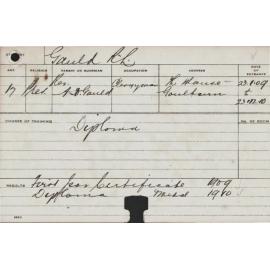 Gauld R.L.
AGE RELIGION PARENT OR GUARDIAN OCCUPATION ADDRESS DATE OF ENTRANCE
17 Pres Rev. A.D. Gauld Clergyman The Manse Goulburn 23.1.09 to 23.12.10
COURSE OF TRAINING
NO. OF ROOM
Diploma
RESULTS First Year Certificate 1909
Diploma Medal 1910